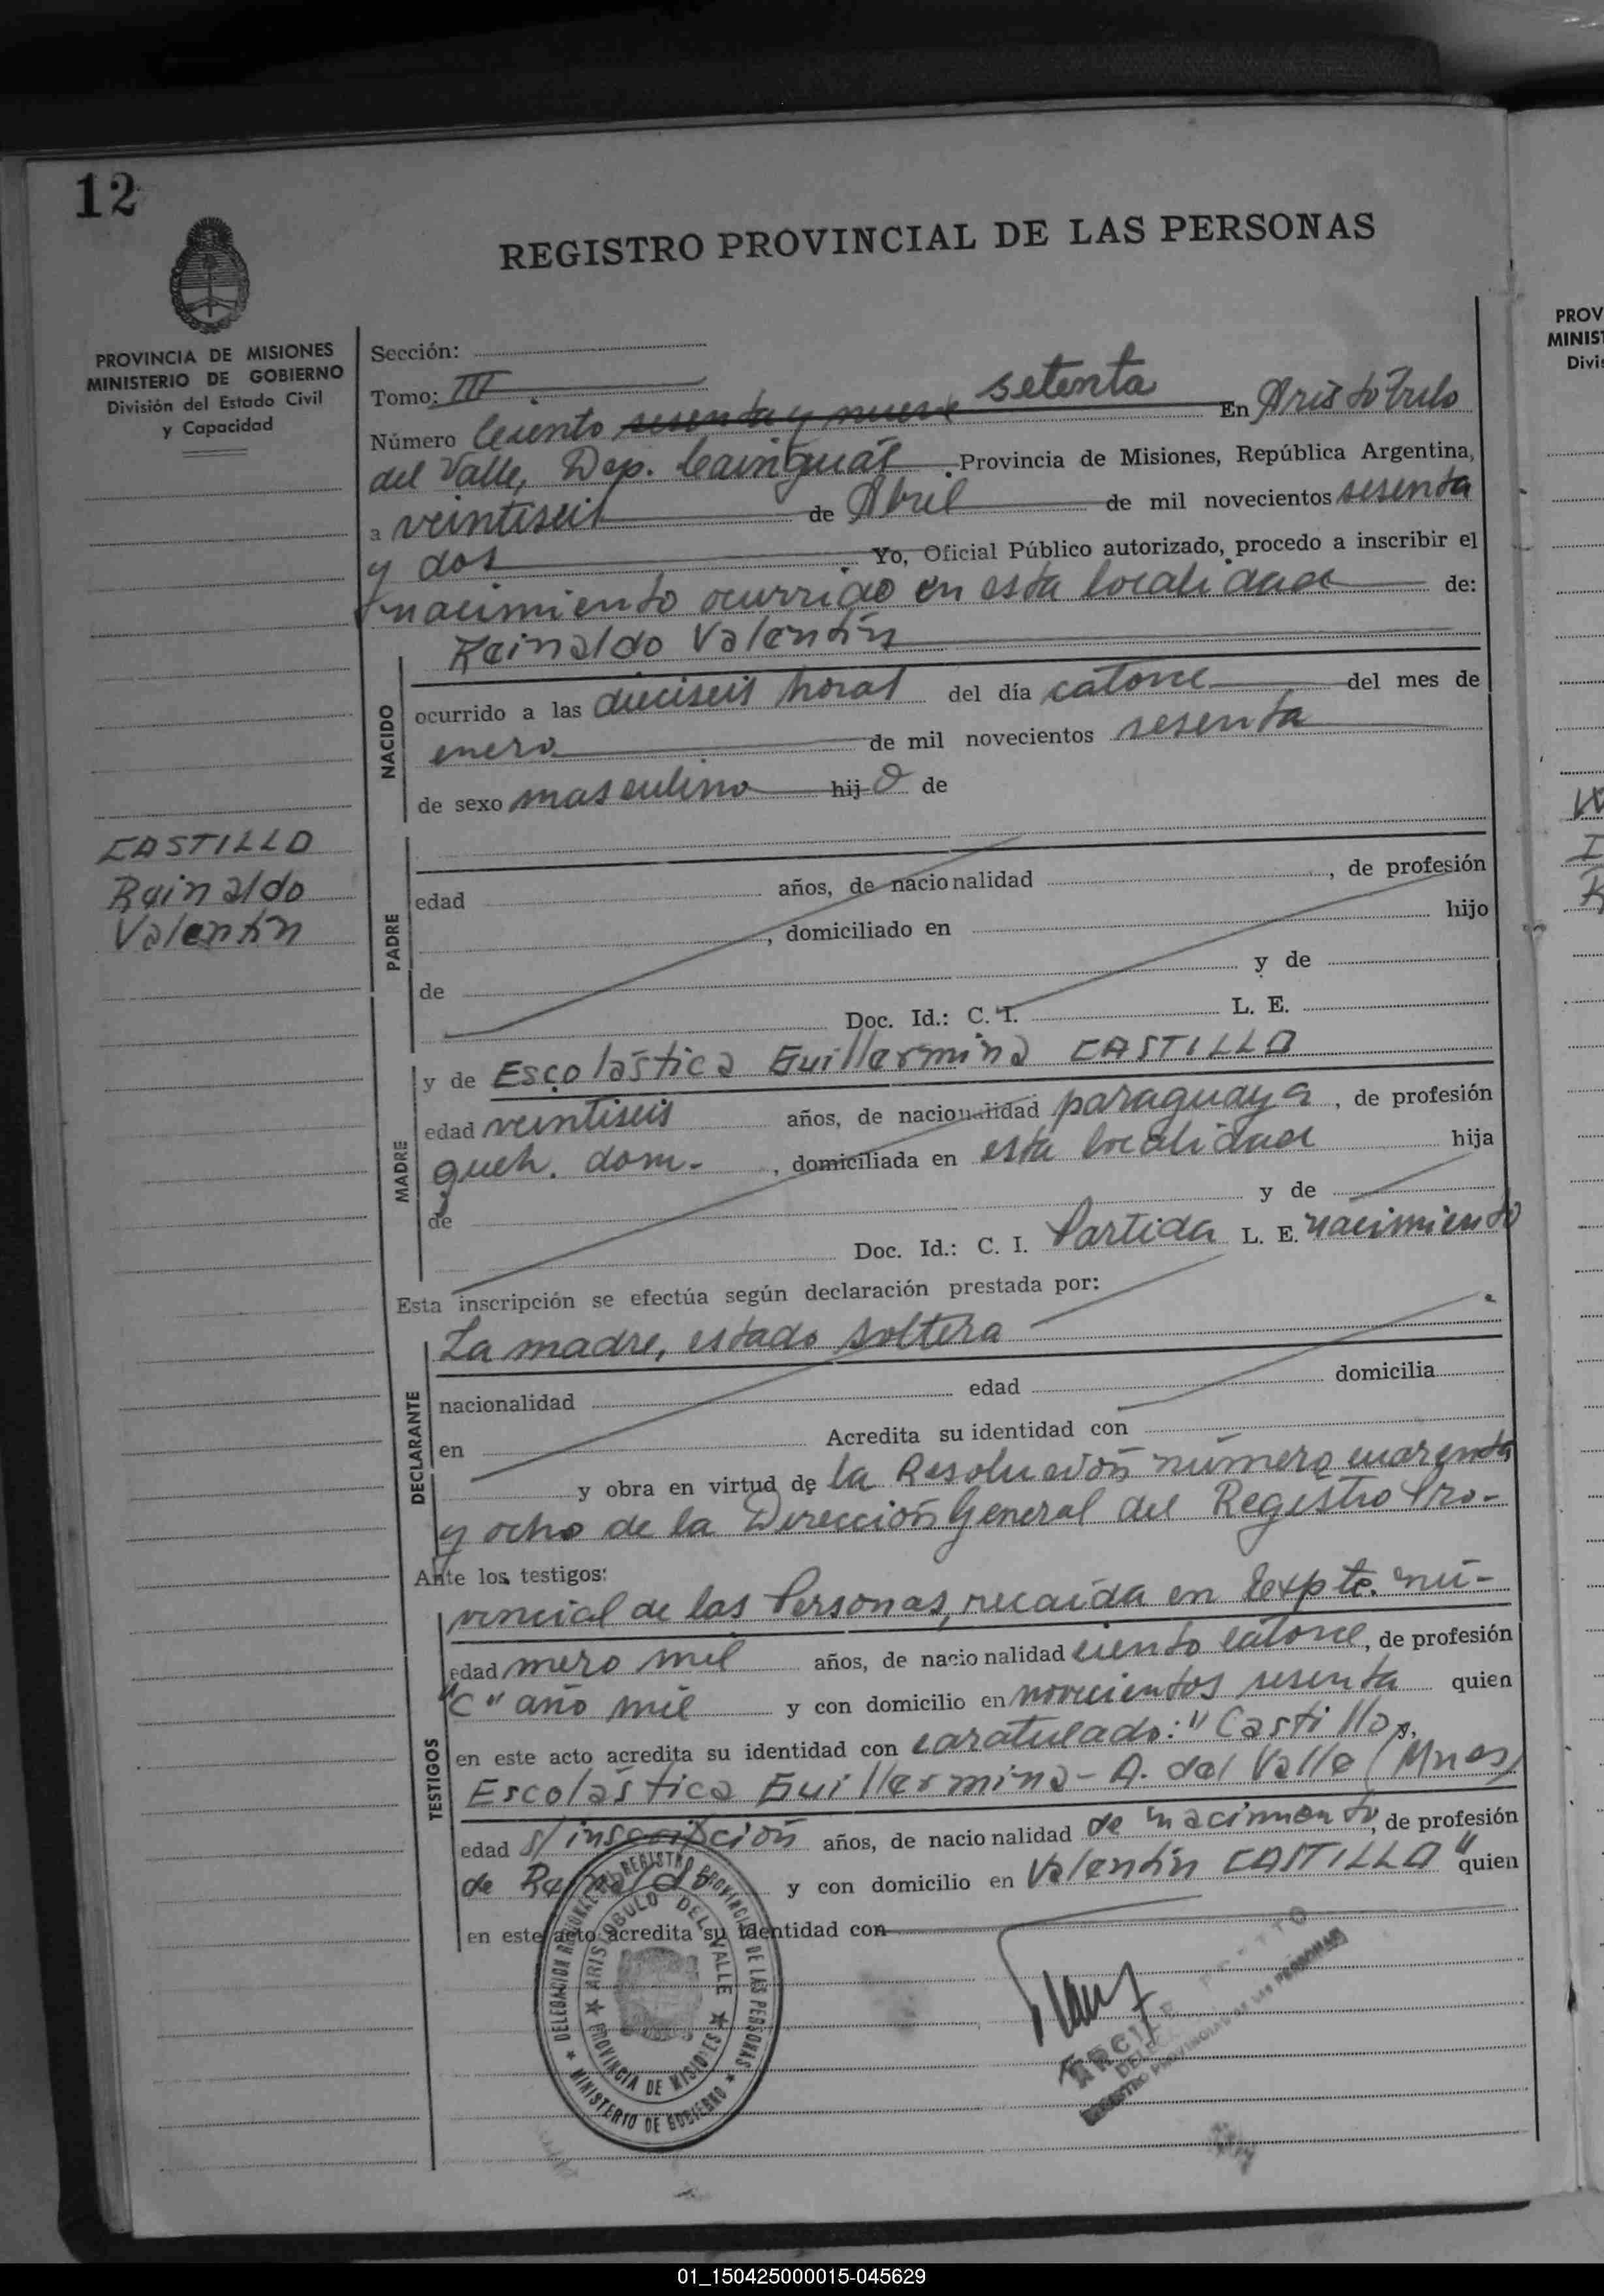 12
REGISTRO PROVINCIAL DE LAS PERSONAS
PROVINCIA DE MISIONES
MINISTERIO DE GOBIERNO
División del Estado Civil
y Capacidad
CASTILLO
Rainaldo
Valentín
Sección:
Tomo: III
Número Ciento sesenta y nueve setenta En Aristóbulo
del Valle, Dep. Cainguás Provincia de Misiones, República Argentina,
a veintiseis de Abril de mil novecientos sesenta
y dos Yo, Oficial Público autorizado, procedo a inscribir el
nacimiento ocurrido en esta localidad de:
Reinaldo Valentín
NACIDO
ocurrido a las dieciseis horas del día catorce del mes de
enero de mil novecientos sesenta
de sexo masculino hijo de
PADRE
edad años, de nacionalidad , de profesión
, domiciliado en hijo
de y de
Doc. Id.: C. I. L. E.
MADRE
y de Escolástica Guillermina CASTILLO
edad veintiseis años, de nacionalidad paraguaya, de profesión
queh. dom. , domiciliada en esta localidad hija
de y de
Doc. Id.: C. I. Partida L. E. nacimiento
Esta inscripción se efectúa según declaración prestada por:
DECLARANTE
La madre, estado soltera
nacionalidad edad domicilia
en Acredita su identidad con
y obra en virtud de la Resolución número cuarenta
y ocho de la Dirección General del Registro Pro-
Ante los testigos:
TESTIGOS
vincial de las Personas, recaída en Expte. nú-
edad mero mil años, de nacionalidad ciento catorce, de profesión
"C" año mil y con domicilio en novecientos sesenta quien
en este acto acredita su identidad con caratulado: "Castillo,
Escolástica Guillermina - A. del Valle (Mnes)
edad s/inscripción años, de nacionalidad de nacimiento, de profesión
de Rainaldo y con domicilio en Valentín CASTILLO" quien
en este acto acredita su identidad con
DELEGACION REGIONAL DEL REGISTRO PROVINCIAL DE LAS PERSONAS
MINISTERIO DE GOBIERNO
ARISTOBULO DEL VALLE
PROVINCIA DE MISIONES
REGISTRO PROVINCIAL DE LAS PERSONAS
PROV
MINIST
Divi
01_150425000015-045629